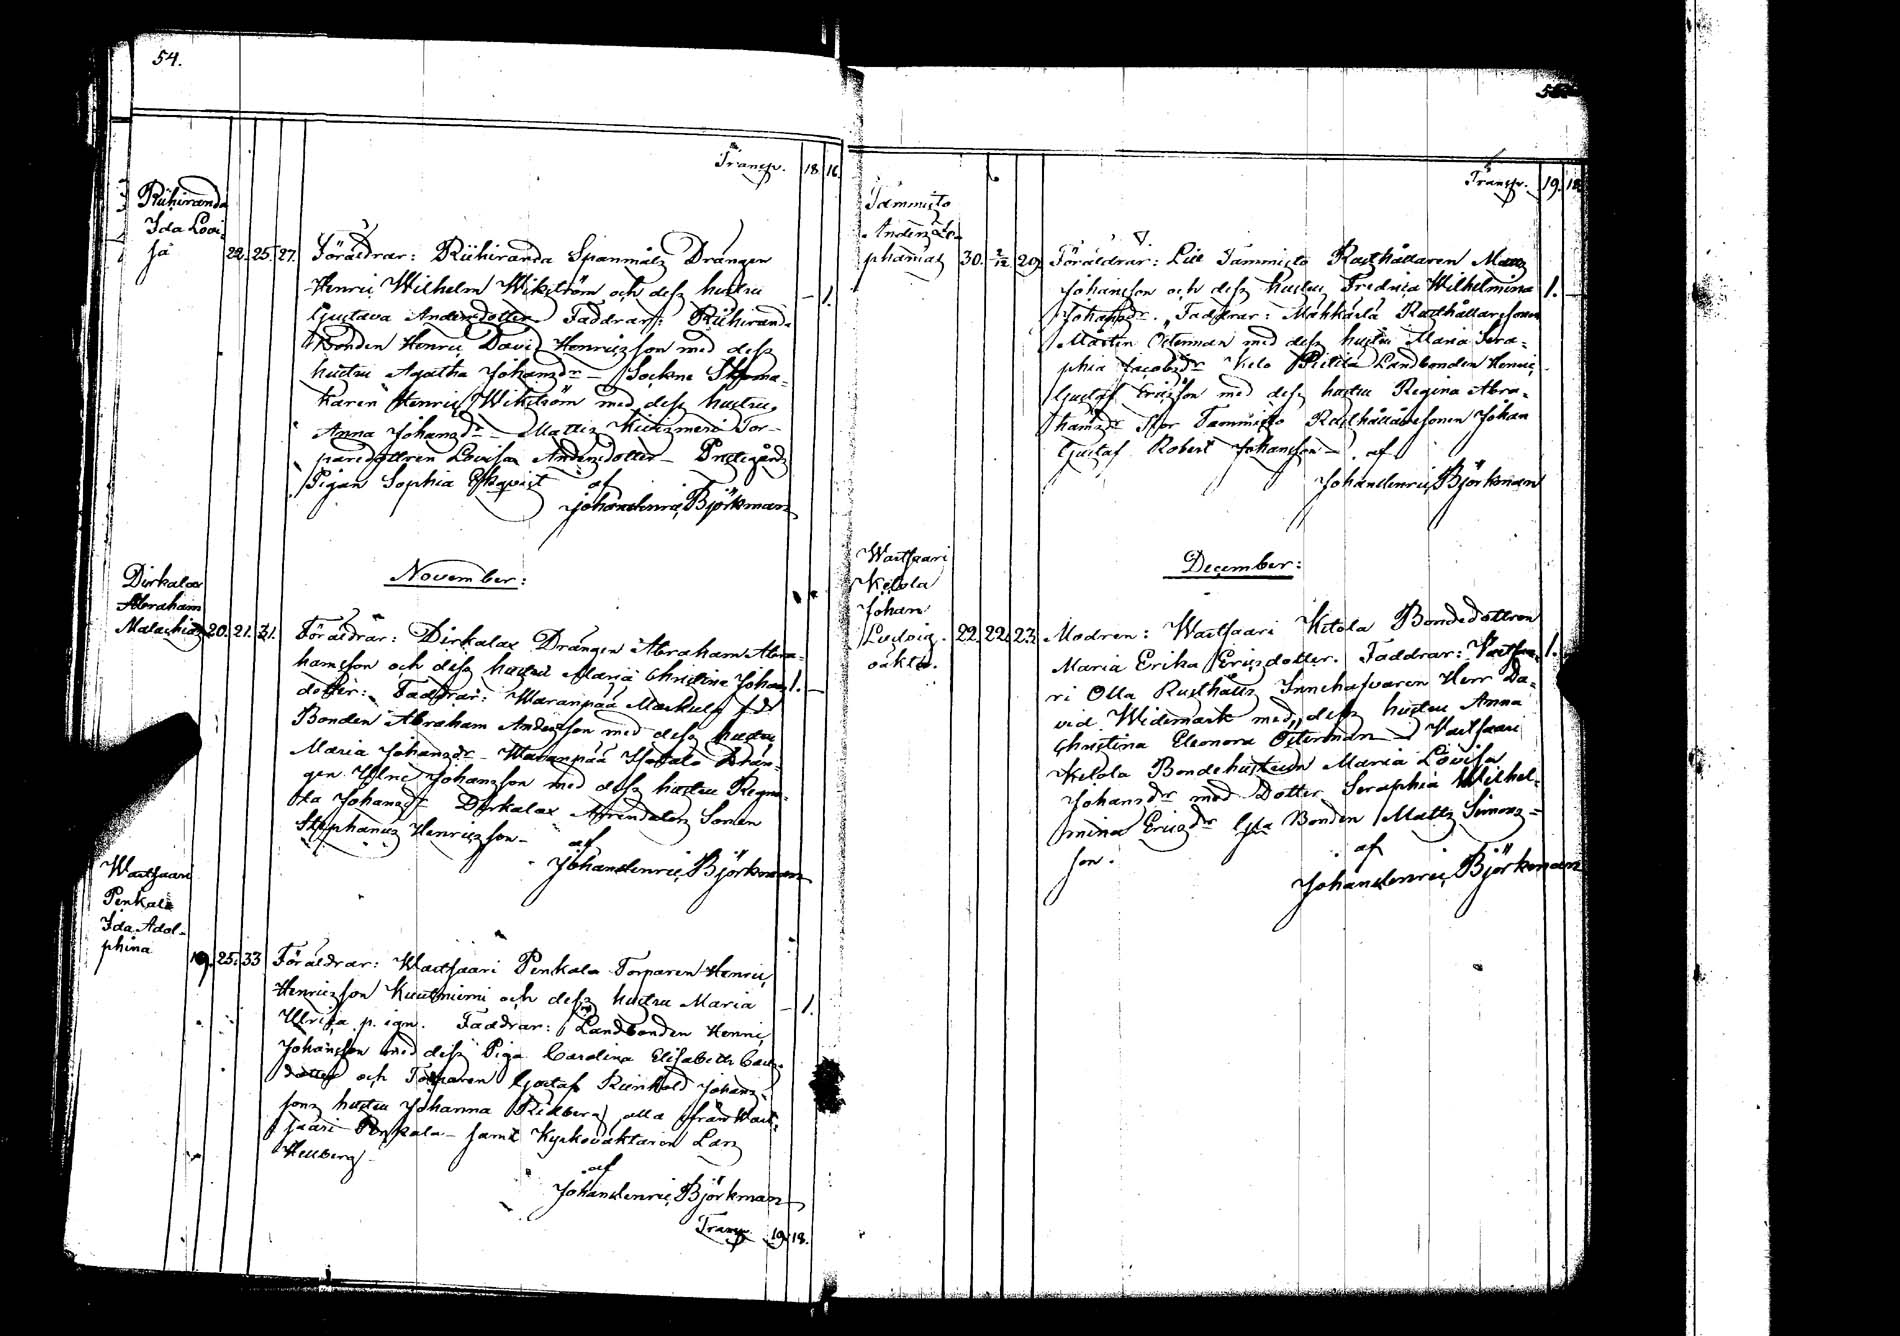 54.
Transp. 18 16.
Riihiranda
Ida Lovi-
sa 22. 25. 27. Föräldrar: Riihiranda Spanmåls Drängen
Henric Wilhelm Wikström och dess hustru — 1.
Gustava Andersdotter Faddrar: Riihiranda
Bonden Henric David Henricsson med dess
hustru Agatha Johansdr — Sockne Skoma-
karen Henric Wikström med dess hustru
Anna Johansdr — Mattis Tor-
paredottren Lovisa Andersdotter — Prestegårds
Pigan Sophia Ekqvist af
Johan Henric Björkman
November:
Dirkalax
Abraham
Malachias 20. 21. 31. Föräldrar: Dirkalax Drängen Abraham Abra-
hamsson och dess hustru Maria Christina Johans 1. —
dotter: Faddrar: Waranpää Markula f.d.
Bonden Abraham Andersson med dess hustru
Maria Johansdr — Waranpää Drän-
gen Johansson med dess hustru Regna-
Johansdr Dirkalax Arrendators Sonen
Stephanus Henricsson — af
Johan Henric Björkman
Wartsaari
Penkala
Ida Adol-
phina 19. 25. 33 Föräldrar: Wartsaari Penkala Torparen Henric
Henricsson Kuutniemi och dess hustru Maria — 1.
Ulrica p. ign. Faddrar: Landbonden Henric
Johansson med dess Piga Carolina Elisabeth Carls-
dotter och Torparen Gustaf Reinhold Johans-
sons hustru Johanna Ridberg alla från Wart-
saari Penkala — samt Kyrkovaktaren Lars
Hellberg —
af
Johan Henric Björkman
Transp. 19. 18.
Transp. 19. 18.
Tammisto
Anders Ze-
phanias 30. 2/12 29 Föräldrar: Lill Tammisto Rusthållaren Matts
Johansson och dess hustru Fredrica Wilhelmina 1. —
Johansdr. Faddrar: Mähkärlä Rusthållaresonen
Mårten Österman med dess hustru Maria Sera-
phia Jacobsdr Kelo Pietilä Landbonden Henric
Gustaf Ericsson med dess hustru Regina Abra-
hamsdr Stor Tammisto Rusthållaresonen Johan
Gustaf Robert Johansson — af
Johan Henric Björkman
December:
Wartsaari
Ketola
Johan
Ludvig.
oäkta. 22. 22. 23. Modren: Wartsaari Ketola Bondedottren
Maria Erika Ericsdotter. Faddrar: Vartsaa- 1.
ri Olla Rusthålls Innehafvaren Herr Da-
vid Widemark med dess hustru Anna
Christina Eleonora Österman — Vartsaari
Ketola Bondehustrun Maria Lovisa
Johansdr med Dotter Seraphia Wilhel-
mina Ericsdr Bonden Matts Simons-
son. af
Johan Henric Björkman